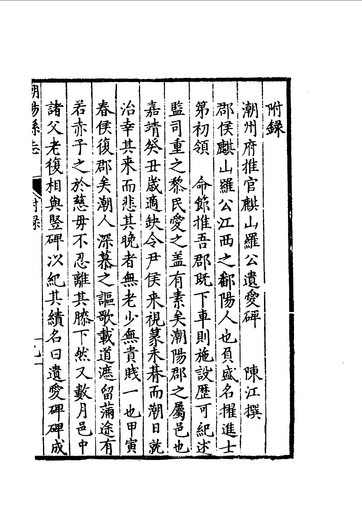 附錄
潮州府推官麒山羅公遺愛碑 陳江撰
郡侯麒山羅公江西之鄱陽人也負盛名擢進士
第初領 命錄推吾郡既下車則施設歷可紀述
監司重之黎民愛之蓋有素矣潮陽郡之屬邑也
嘉靖癸丑歲適缺令尹侯來視篆未朞而潮日就
治幸其來而悲其晚者無老少無貴賤一也甲寅
春侯復郡矣潮人深慕之謳歌載道遮留滿途有
若赤子之於慈母不忍離其膝下然又數月邑中
諸父老復相與豎碑以紀其績名曰遺愛碑碑成
潮陽縣志 附錄